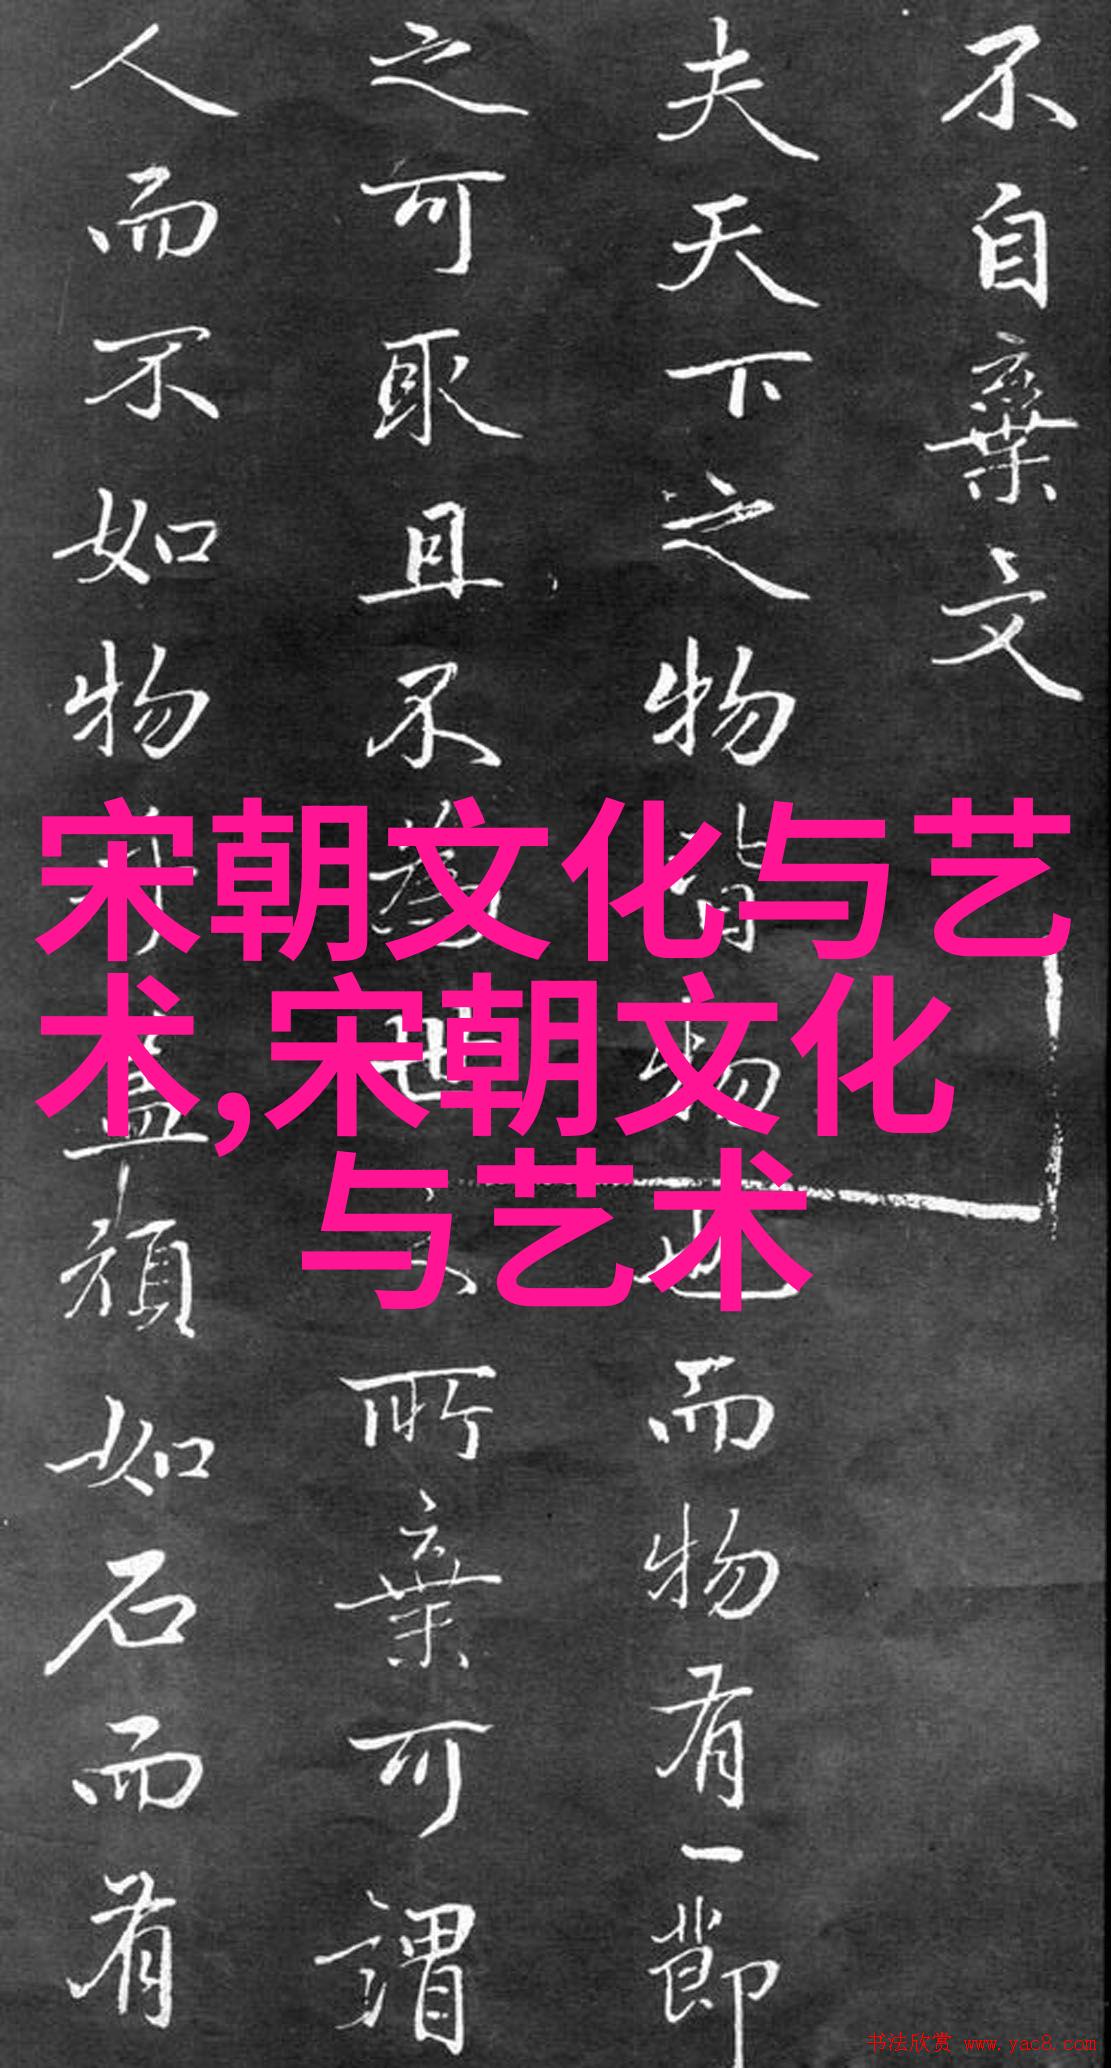 不自棄文
夫天下之物皆物也而物有一節
之可取且不為世之所棄可謂
人而不如物乎蓋頑如石而有
宋朝文化与艺
术,宋朝文化
与艺术
书法欣赏 www.yac8.com